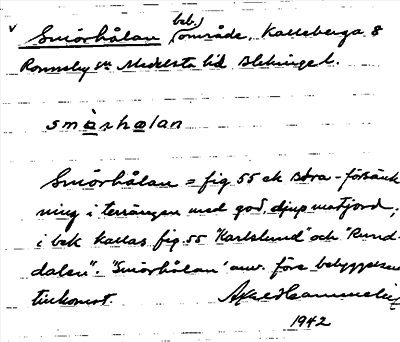 v Smörhålan (beb.) område, Kallsberga 8
Ronneby sn Medelsta hd Blekinge l.
smörhålan
Smörhålan = fig 55 ek Bdra - försänk
ning i terrängen med god, djup matjord,
i bek kallas fig. 55 "Karlslund" och "Rund-
dalen". "Smörhålan" anv. före bebyggelsens
tillkomst.
1942